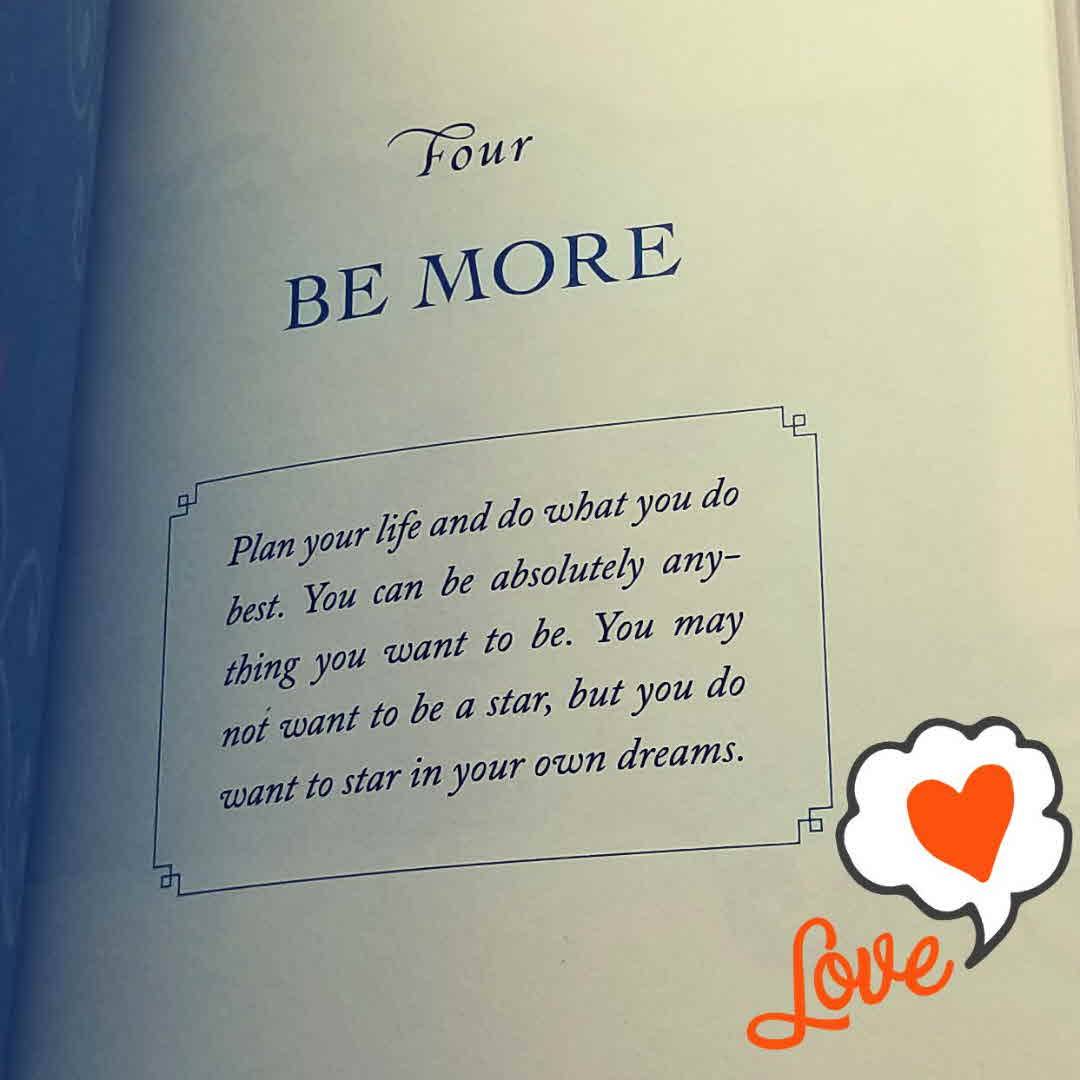 Four
BE MORE
Plan your life and do what you do
best. You can be absolutely any-
thing you want to be. You may
not want to be a star, but you do
want to star in your own dreams.
Love